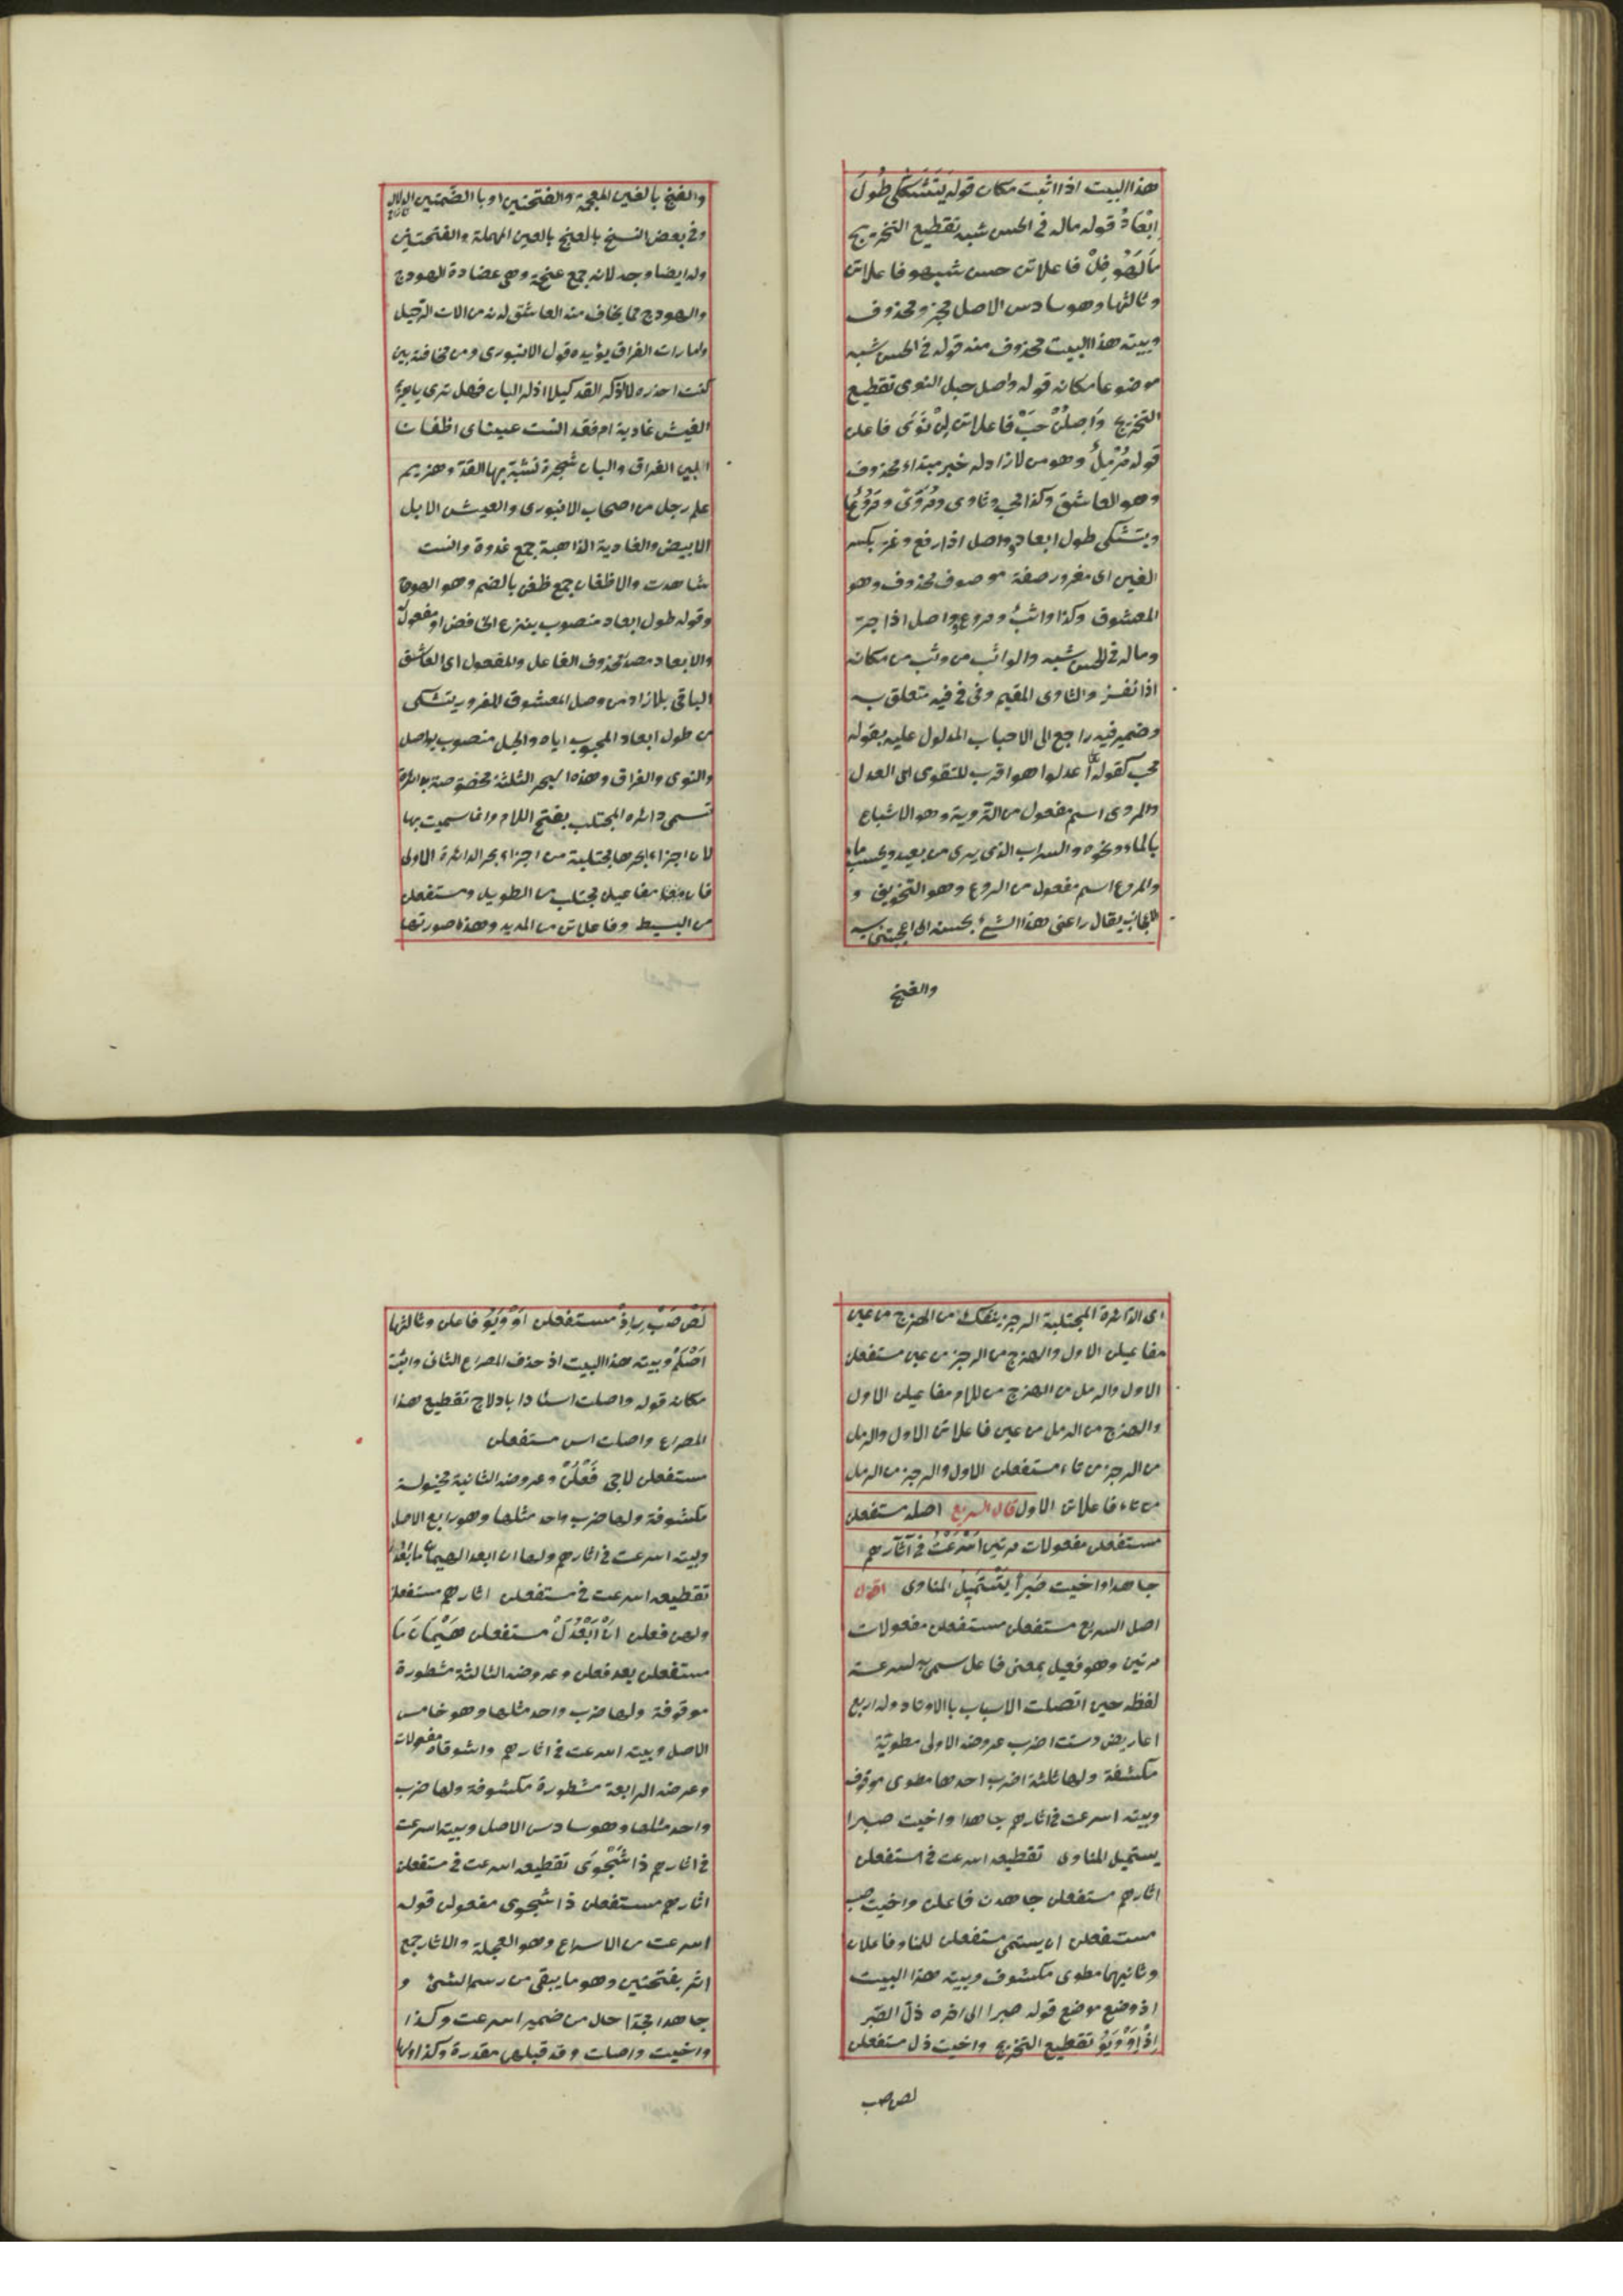 هذا البيت اذا اثبت مكان قوله يَتَشَكّى طُولَ
اِبْعَادُ قوله ماله فى الحسن شبه تقطيع التخريج
مَالَهُو فِلْ فاعلاتن حسن شبهو فاعلاتن
وثالثها وهو سادس الاصل مجزو محذوف
وبيته هذا البيت محذوف منه قوله فى الحسن شبه
موضوعا مكانه قوله واصل حبل النوى تقطيع
التخريج وَاصِلُنْ حَبْ فاعلاتن لِنْ نَوَى فاعلن
قوله مُرْمِلٌ وهو من لازاد له خبر مبتداء محذوف
وهو العاشق وكذا محب وثاوى ومُرَوَّىً ومُرَوَّعًا
ويتشكى طول ابعاد وواصل اذا رفع وغر بكسر
الغين اى مغرور صفة موصوف محذوف وهو
المعشوق وكذا واثبٌ ومروع وواصل اذا جر
وماله فى الحسن شبه والواثب من وثب من مكانه
اذا نفر والثاوى المقيم وفى فى فيه متعلق به
وضمير فيه راجع الى الاحباب المدلول عليه بقوله
محب كقوله تع اعدلوا هو اقرب للتقوى اى العدل
والمروى اسم مفعول من التروية وهو الاشباع
بالماء ونحوه والسراب الذى يرى من بعيد ويحسب ماء
والمروع اسم مفعول من الروع وهو التخويف و
الاعجاب يقال راعنى هذا الشئ بحسنه اى اعجبنى به
والغنج
والغنج بالغين المعجمة والفتحتين او با الضمتين الدلال
وفى بعض النسخ بالعنج بالعين المهملة والفتحتين
وله ايضا وجه لانه جمع عنجة وهى عضادة الهودج
والهودج مما يخاف منه العاشق لانه من الات الترحيل
وامارات الفراق يؤيده قول الانبورى ومن مخافة بين
كنت احذره لا اذكر القد كيلا اذكر البان فهل ترى يا هزيم
العيش غادية ام فقد انست عيناى اظغانا
البين الفراق والبان شجرة تشبه بها القد وهزيم
علم رجل من اصحاب الانبورى والعيش الابل
الابيض والغادية الذاهبة جمع غدوة وانست
شاهدت والاظغان جمع ظغن بالضم وهو الهودج
وقوله طول ابعاد منصوب بنزع الخافض او مفعول له
والابعاد مصدر محذوف الفاعل والمفعول اى العاشق
الباقى بلا زاد من وصل المعشوق المغرور يتشكى
من طول ابعاد المحبوب اياه والحبل منصوب بواصل
والنوى والفراق وهذه ابحر الثلثة مخصوصة بدائرة
تسمى دائرة المجتلب بفتح اللام وانما سميت بها
لان اجزاء ابحرها مجتلبة من اجزاء بحر الدائرة الاولى
فان مفاعيلن مجتلب من الطويل ومستفعلن
من البسيط وفاعلاتن من المديد وهذه صورتها
اى الدائرة المجتلبة الرجز ينفك من الهزج من عين
مفاعيلن الاول والهزج من الرجز من عين مستفعلن
الاول والرمل من الهزج من لام مفاعيلن الاول
والهزج من الرمل من عين فاعلاتن الاول والرمل
من الرجز من تاء مستفعلن الاول والرجز من الرمل
من تاء فاعلاتن الاول قال السريع اصله مستفعلن
مستفعلن مفعولات مرتين اَسْرَعْتُ فى آثارهم
جاهدا واخيت صَبراً يَسْتَمِيلُ المناوى اقول
اصل السريع مستفعلن مستفعلن مفعولات
مرتين وهو فعيل بمعنى فاعل سمى به لسرعة
لفظه حين اتصلت الاسباب باالاوتاد وله اربع
اعاريض وست اضرب عروضه الاولى مطوية
مكشفة ولها ثلثة اضرب احدها مطوى موقوف
وبيته اسرعت فى اثارهم جاهدا واخيت صبرا
يستميل المناوى تقطيعه اسرعت فى مستفعلن
اثارهم مستفعلن جاهدن فاعلن واخيت صب
مستفعلن ان يستمى مستفعلن للمناو فاعلان
وثانيهما مطوى مكشوف وبيته هذا البيت
اذ وضع موضع قوله صبرا الى اخره ذل الصبر
اِذْ اَوْ وَيَوُ تقطيع التخريج واخيت ذل مستفعلن
لص صب
لَصْ صَبْ رِ اِذْ مستفعلن اَوْ وَيَوُ فاعلن وثالثها
اَصْلَمُ وبيته هذا البيت اذ حذف المصراع الثانى واثبت
مكانه قوله واصلت اسئادا بادلاج تقطيع هذا
المصراع واصلت اس مستفعلن
مستفعلن لاجى فَعْلُنْ وعروضه الثانية مخبولة
مكشوفة ولها ضرب واحد مثلها وهو رابع الاصل
وبيته اسرعت فى اثارهم ولها ان ابعد الهيمان ما بَعُدَ
تقطيعه اسرعت فى مستفعلن اثارهم مستفعلن
ولهن فعلن اَنْ اَبْعَدَلْ مستفعلن هَيْمَانَ مَا
مستفعلن بعد فعلن وعروضه الثالثة مشطورة
موقوفة ولها ضرب واحد مثلها وهو خامس
الاصل وبيته اسرعت فى اثارهم واشوقاه مفعولات
وعرضه الرابعة مشطورة مكشوفة ولها ضرب
واحد مثلها وهو سادس الاصل وبيته اسرعت
فى اثارهم ذا شَجْوَى تقطيعه اسرعت فى مستفعلن
اثارهم مستفعلن ذا شجوى مفعولن قوله
اسرعت من الاسراع وهو العجلة والاثار جمع
اثر بفتحتين وهو ما يبقى من رسم الشئ و
جاهدا مجدا حال من ضمير اسرعت وكذا
واخيت واصلت وقد قبلهن مقدرة وكذا ولها